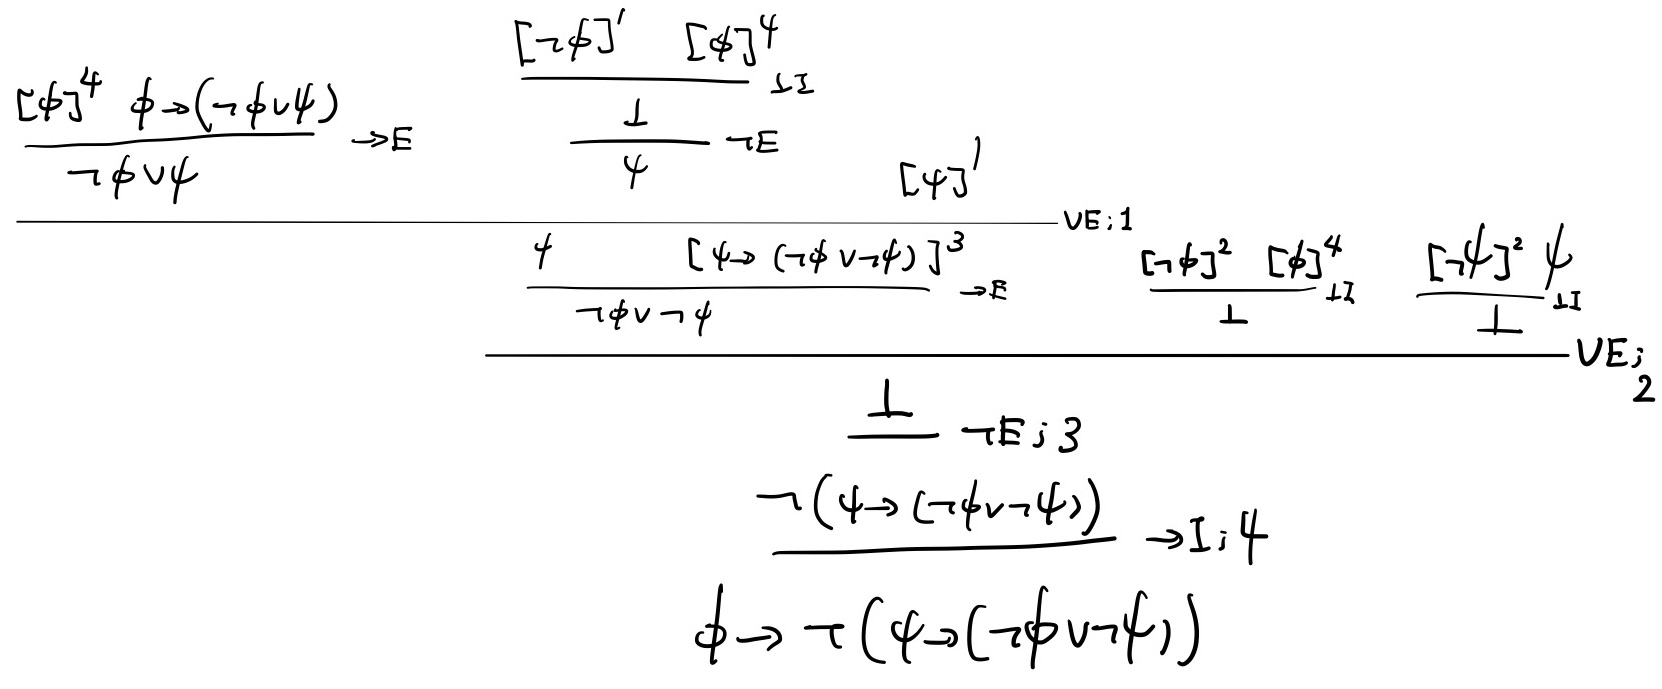 [¬ϕ]¹ [ϕ]⁴
⊥I
[ϕ]⁴ ϕ→(¬ϕ∨ψ)
→E
⊥
¬E
¬ϕ∨ψ
ψ
[ψ]¹
∨E;1
ψ [ψ→(¬ϕ∨¬ψ)]³
→E
[¬ϕ]² [ϕ]⁴
⊥I
[¬ψ]² ψ
⊥I
¬ϕ∨¬ψ
⊥
⊥
∨E;
2
⊥
¬E;3
¬(ψ→(¬ϕ∨¬ψ))
→I;4
ϕ→¬(ψ→(¬ϕ∨¬ψ))